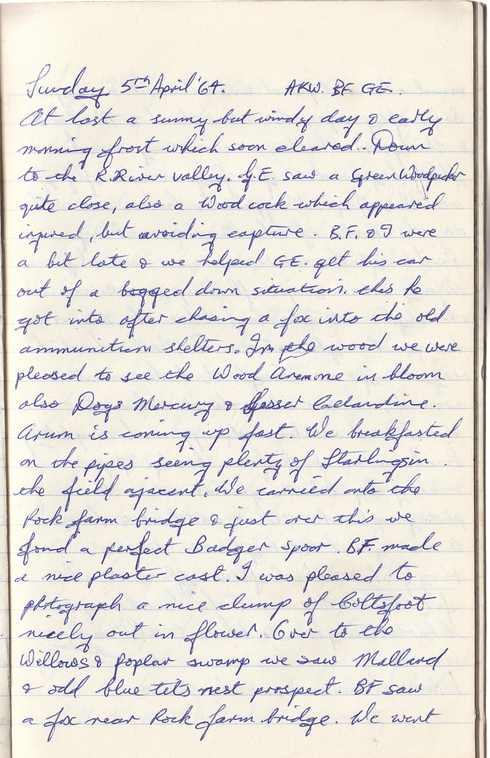 Sunday 5th April '64. AKW. BF. GE.
At last a sunny but windy day & early
morning frost which soon cleared. Down
to the R. River valley. G.E saw a Green Woodpecker
quite close, also a Woodcock which appeared
injured, but avoiding capture. B.F. & I were
a bit late & we helped GE. get his car
out of a bogged down situation. this he
got into after chasing a fox into the old
ammunition shelters. In the wood we were
pleased to see the Wood Anemone in bloom
also Dogs Mercury & Lesser Celandine.
Arum is coming up fast. We breakfasted
on the pipes seeing plenty of Starlings in
the field ajacent. We carried onto the
Rock farm bridge & just over this we
fond a perfect Badger spoor. BF. made
a nice plaster cast. I was pleased to
photograph a nice clump of Coltsfoot
nicely out in flower. Over to the
Willows & poplar swamp we saw Mallard
& odd blue tits nest prospect. BF saw
a fox near Rock farm bridge. We went